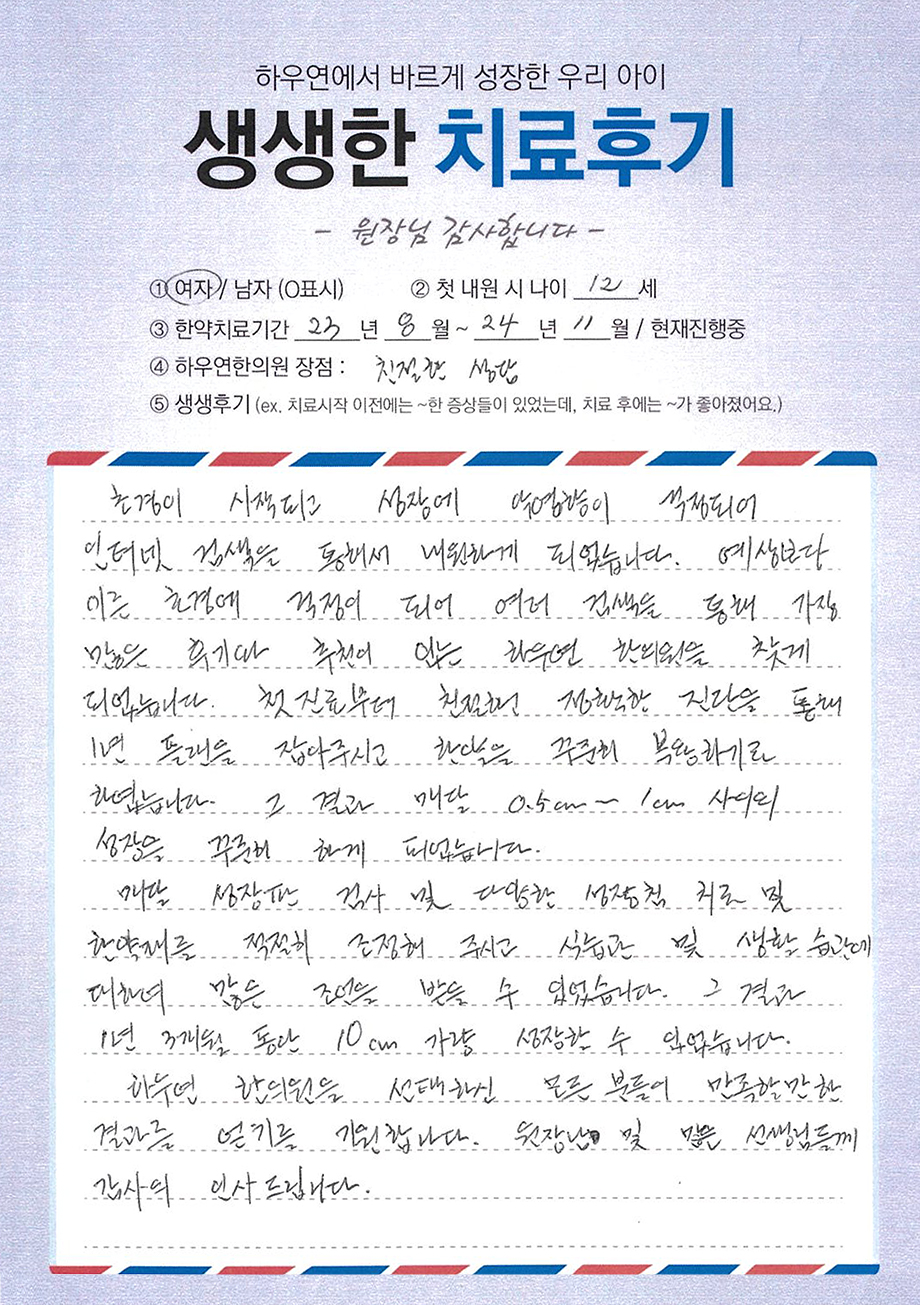 하우연에서 바르게 성장한 우리 아이
생생한 치료후기
- 원장님 감사합니다 -
① 여자 / 남자 (O표시) ② 첫 내원 시 나이 12 세
③ 한약치료기간 23 년 8 월 ~ 24 년 11 월 / 현재진행중
④ 하우연한의원 장점 : 친절한 상담
⑤ 생생후기 (ex. 치료시작 이전에는 ~한 증상들이 있었는데, 치료 후에는 ~가 좋아졌어요.)
초경이 시작되고 성장에 악영향이 걱정되어
인터넷 검색을 통해서 내원하게 되었습니다. 예상보다
이른 초경에 걱정이 되어 여러 검색을 통해 가장
많은 후기와 추천이 있는 하우연 한의원을 찾게
되었습니다. 첫 진료부터 친절하고 정확한 진단을 통해
1년 플랜을 잡아주시고 한약을 꾸준히 복용하기로
하였습니다. 그 결과 매달 0.5cm ~ 1cm 사이의
성장을 꾸준히 하게 되었습니다.
매달 성장판 검사 및 다양한 성장침 치료 및
한약재를 적절히 조정해 주시고 식습관 및 생활 습관에
대하여 많은 조언을 받을 수 있었습니다. 그 결과
1년 3개월 동안 10cm 가량 성장할 수 있었습니다.
하우연 한의원을 선택하신 모든 분들이 만족할만한
결과를 얻기를 기원합니다. 원장님 및 많은 선생님들께
감사의 인사 드립니다.